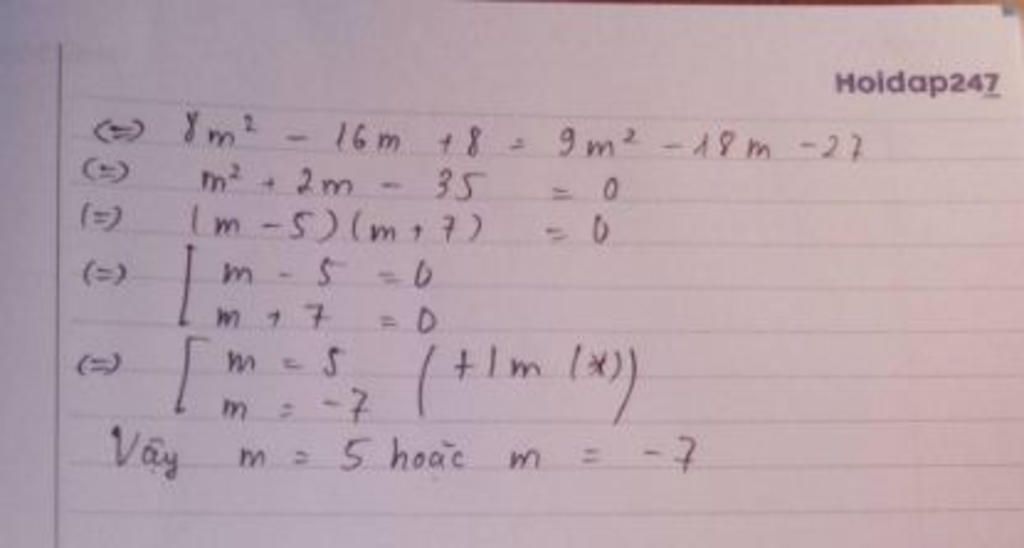 Hoidap247
(=) 8m² - 16m + 8 = 9m² - 18m - 27
(=) m² + 2m - 35 = 0
(=) (m - 5)(m + 7) = 0
(=) [ m - 5 = 0
m + 7 = 0
(=) [ m = 5 (t/m (*))
m = -7
Vậy m = 5 hoặc m = -7